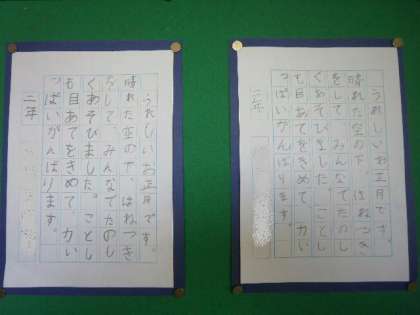 うれしいお正月です。
晴れた空の下、はねつき
をして、みんなでたのし
くあそびました。ことし
も目あてをきめて力い
っぱいがんばります。
二年
うれしいお正月です。
晴れた空の下、はねつき
をして、みんなでたのし
くあそびました。ことし
も目あてをきめて力い
っぱいがんばります。
二年